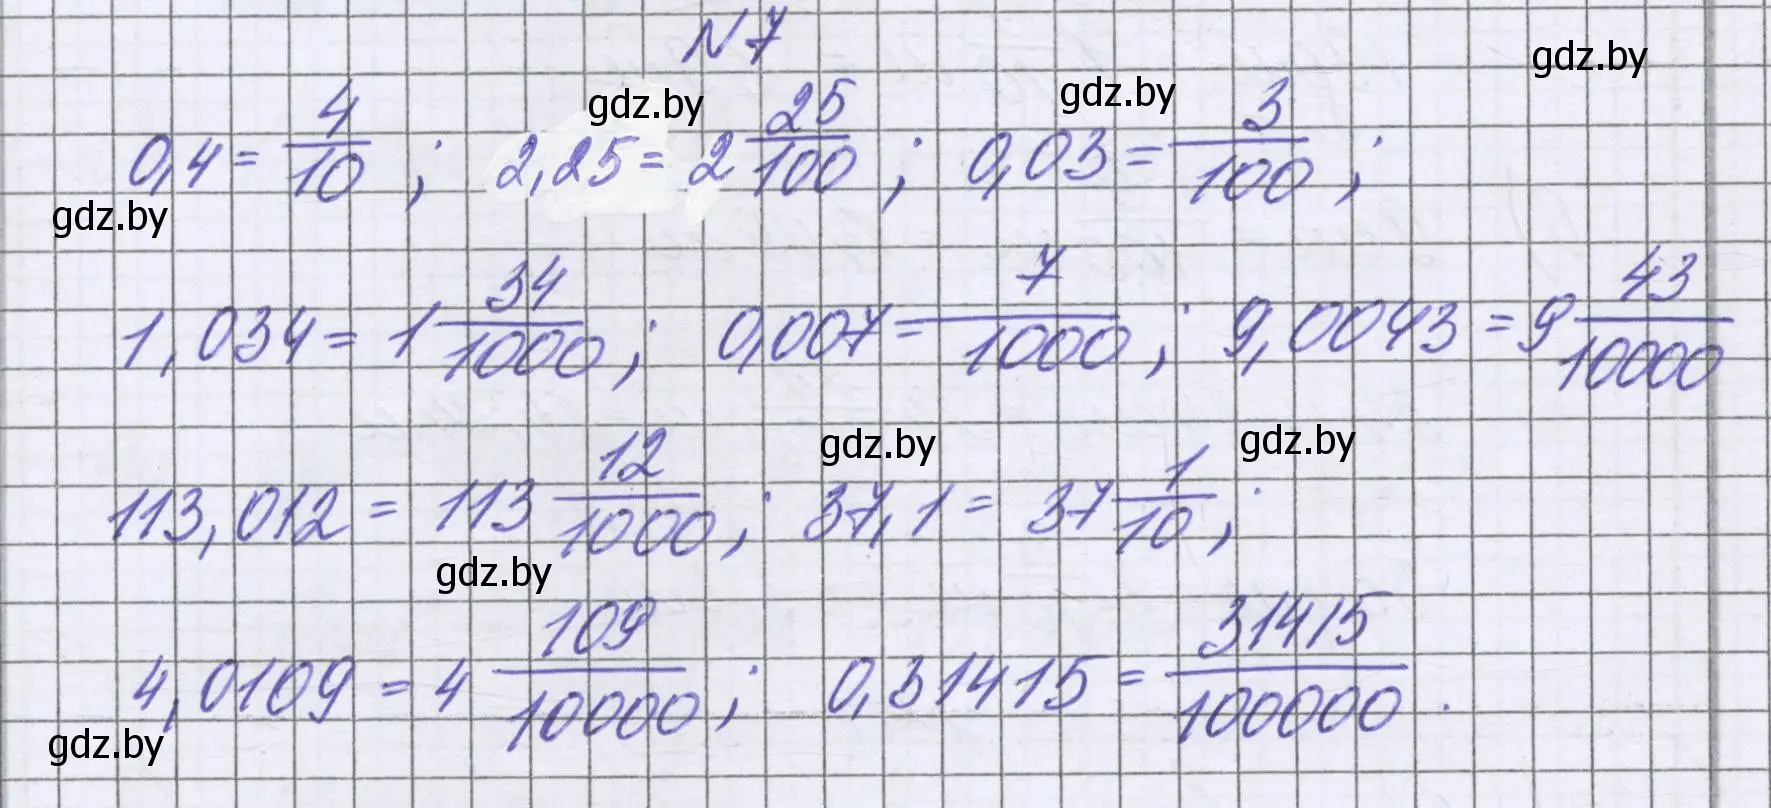 N 7
gdz.by
gdz.by gdz.by
0,4 = 4/10 ; 2,25 = 2 25/100 ; 0,03 = 3/100 ;
gdz.by
1,034 = 1 34/1000 ; 0,007 = 7/1000 ; 9,0043 = 9 43/10000
gdz.by gdz.by
113,012 = 113 12/1000 ; 37,1 = 37 1/10 ;
gdz.by
4,0109 = 4 109/10000 ; 0,31415 = 31415/100000 .
gdz.by